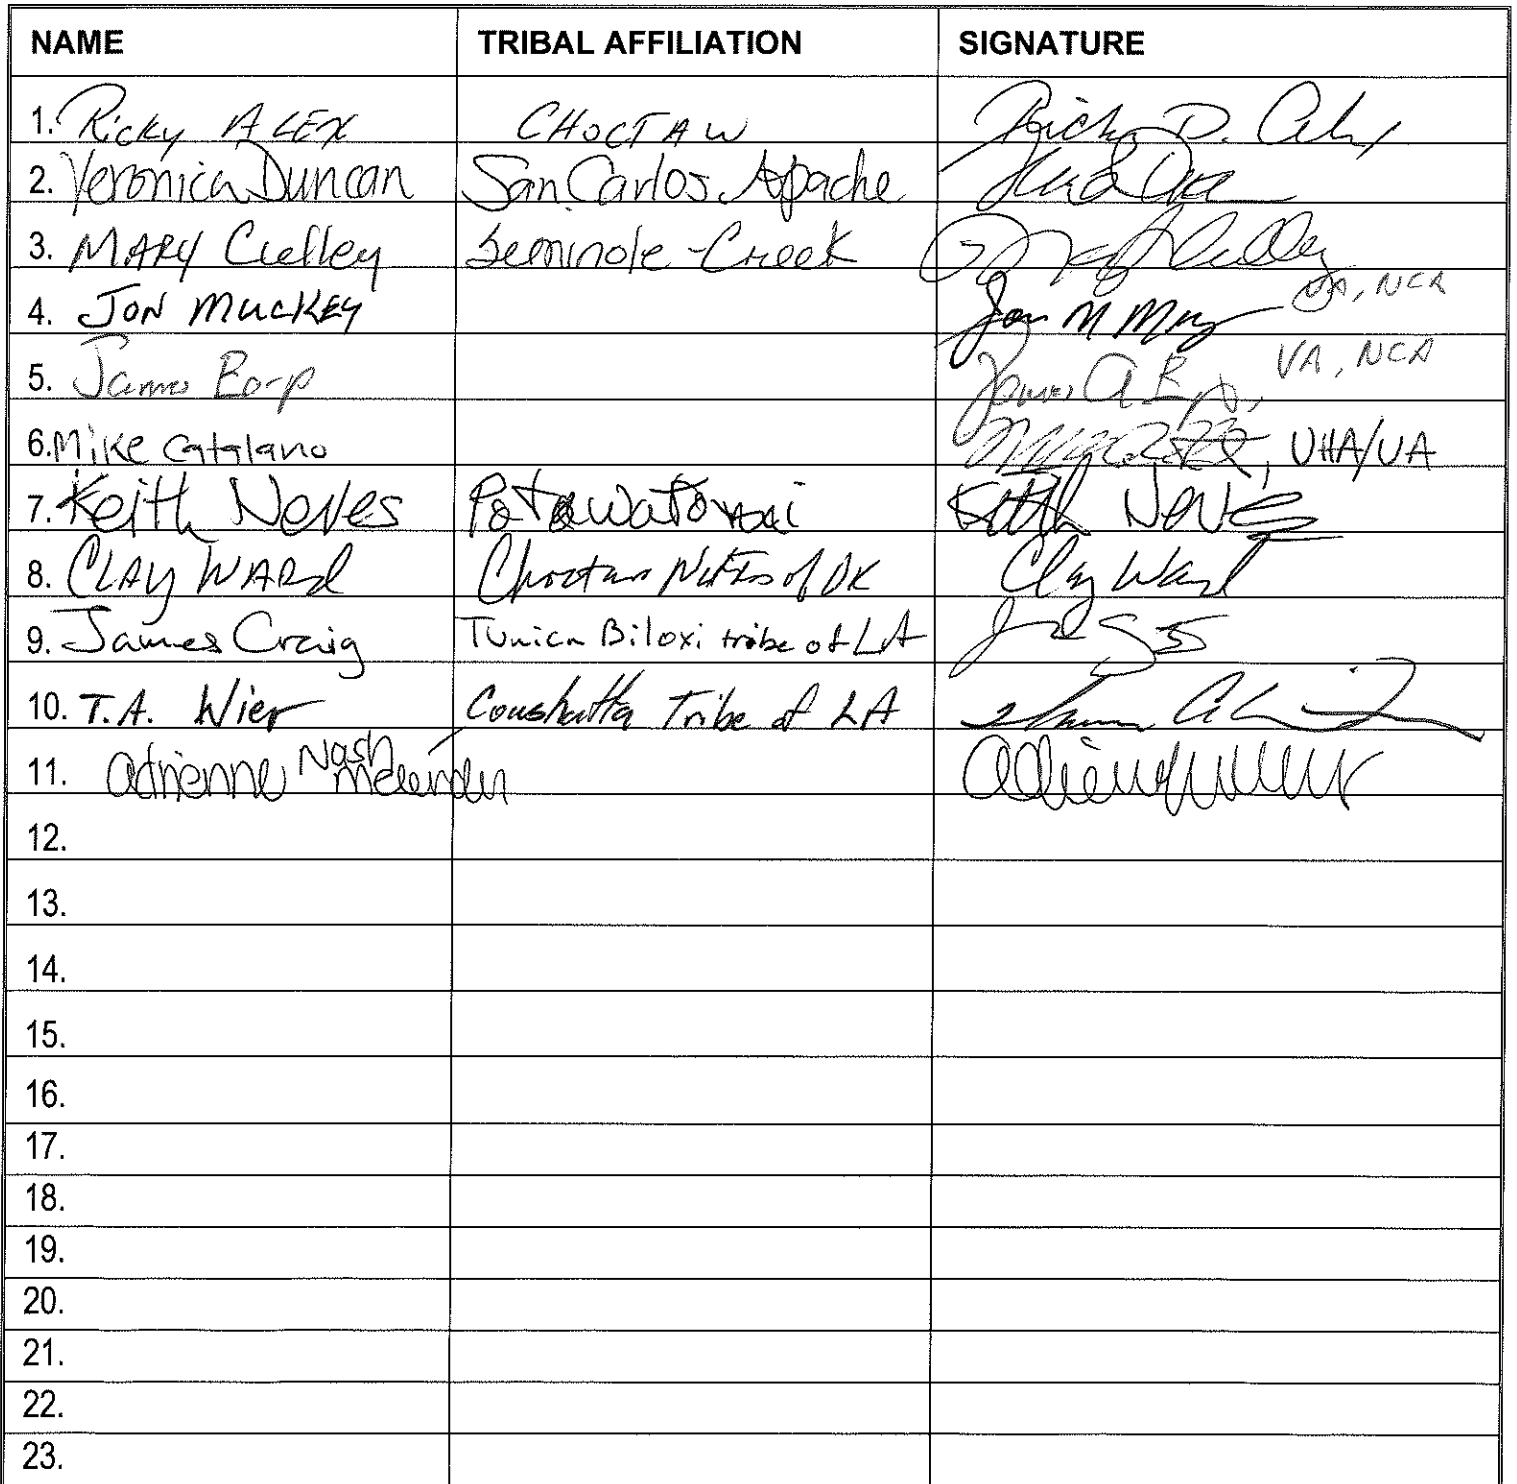 NAME TRIBAL AFFILIATION SIGNATURE
1. Ricky ALEX CHOCTAW Ricky D. Alex
2. Veronica Duncan San Carlos Apache
3. MARY Culley Seminole - Creek Mary Culley
4. JON MUCKEY Jon M VA, NCA
5. James Earp James A E VA, NCA
6. Mike Catalano , VHA/VA
7. Keith Neves Potawatomi Keith Neves
8. CLAY WARD Choctaw Nation of OK Clay Ward
9. James Craig Tunica Biloxi tribe of LA
10. T.A. Wier Coushatta Tribe of LA
11. Adrienne Nash
12.
13.
14.
15.
16.
17.
18.
19.
20.
21.
22.
23.